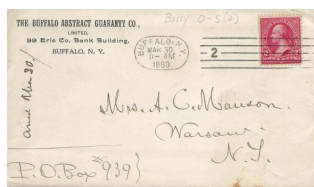 Barry O-5(2)
THE BUFFALO ABSTRACT GUARANTY CO.,
LIMITED,
99 Erie Co. Bank Building,
BUFFALO, N. Y.
BUFFALO, N.Y.
MAR 30
11-AM
1899
2
Mrs. A. C. Manson.
Warsaw
N.Y.
P.O. Box #939}